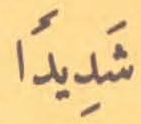 شَدِيدًا